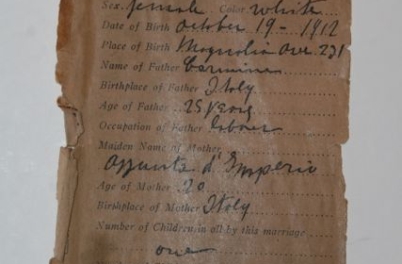 Sex. female Color White
Date of Birth October 19 - 1912
Place of Birth Magnolia Ave. 231
Name of Father Carmine
Birthplace of Father Italy
Age of Father 25 years
Occupation of Father labour
Maiden Name of Mother
Assunta d'Imperio
Age of Mother 20
Birthplace of Mother Italy
Number of Children in all by this marriage
one